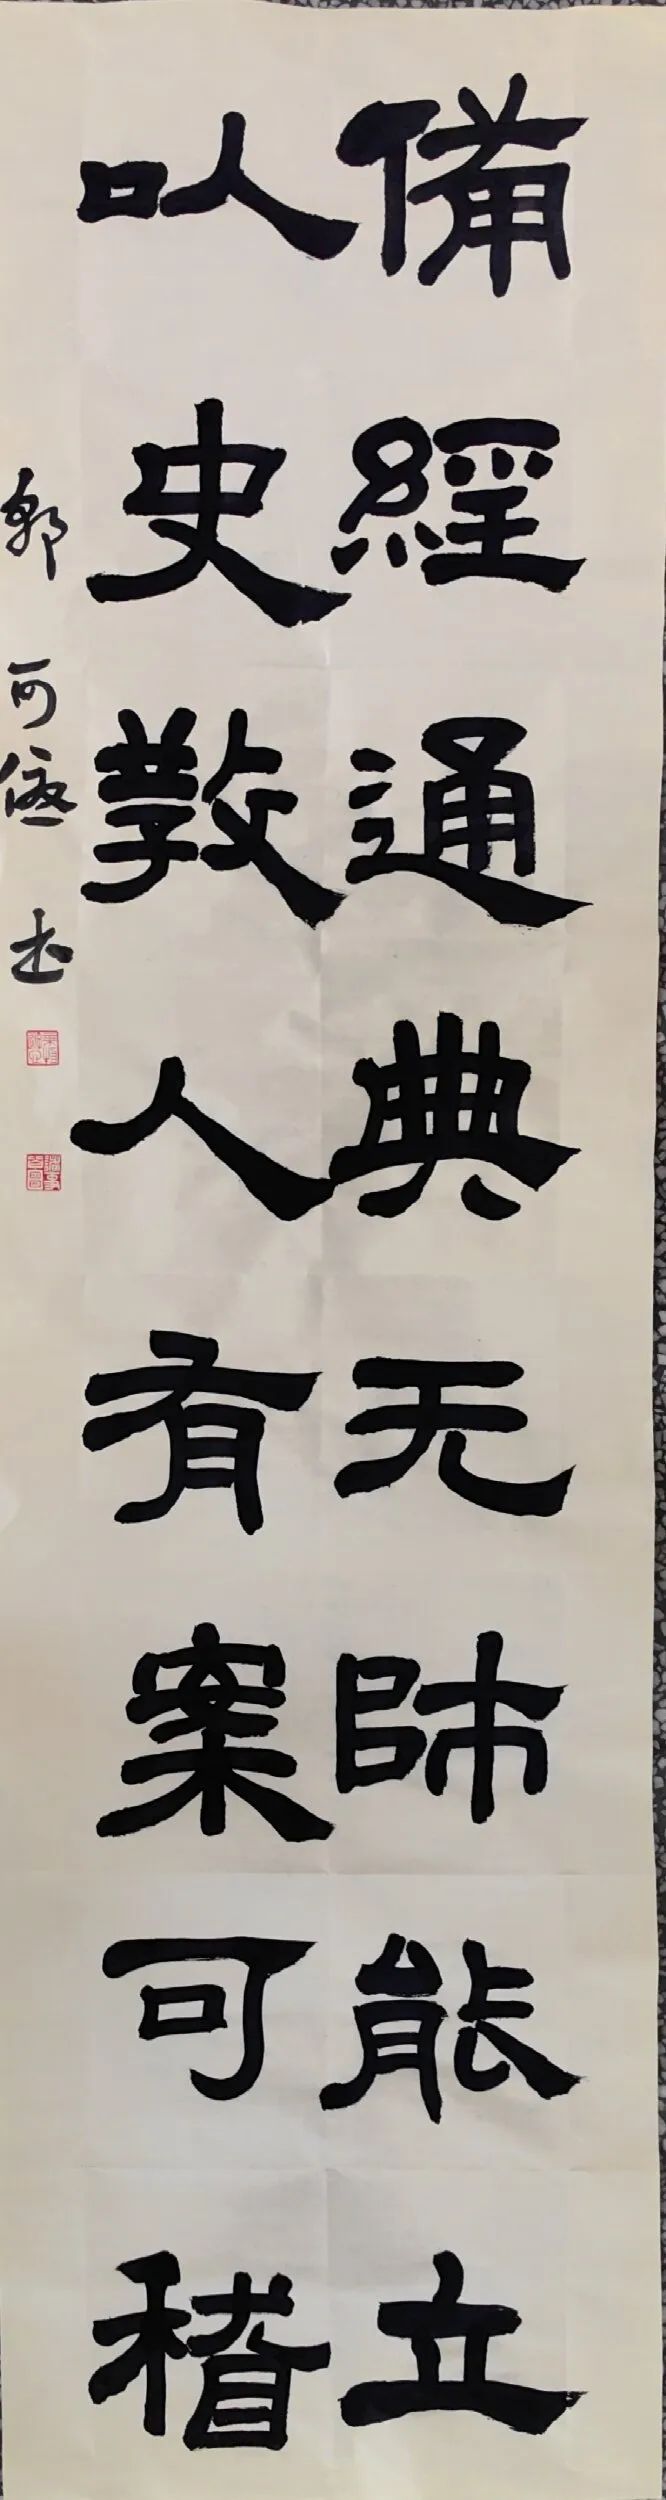 備經通典无師能立
以史敎人有案可稽
郭可书